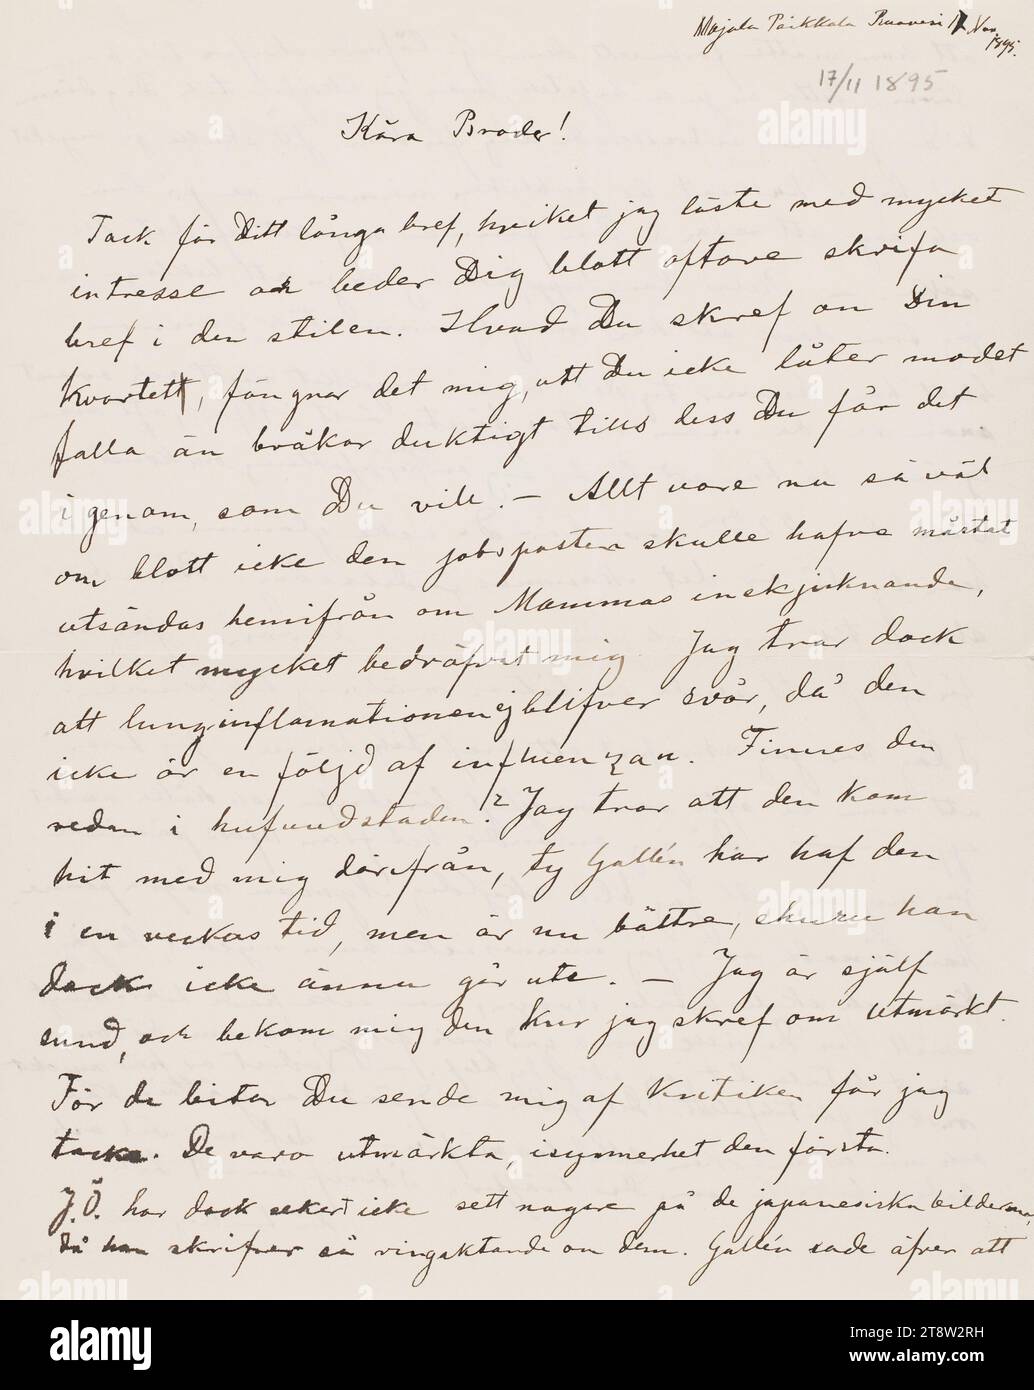 Majala Päikkala Ruovesi 17 Nov.
1895.
17/11 1895
Kära Broder!
Tack för Ditt långa bref, hvilket jag läste med mycket
intresse och beder Dig blott oftare skrifva
bref i den stilen. Hvad Du skref om Din
kvartett, fängnar det mig, att Du icke låter modet
falla än bråkar duktigt tills dess Du får det
igenom, som Du vill. – Allt vore nu så väl
om blott icke den jobsposten skulle hafva måstat
utsändas hemifrån om Mammas insjuknande,
hvilket mycket bedröfvat mig. Jag tror dock
att lunginflamationen ej blifver svår, då den
icke är en följd af influenzan. Finnes den
redan i hufvudstaden? Jag tror att den kom
hit med mig därifrån, ty Gallén har haf den
i en veckas tid, men är nu bättre, ehuru han
dock icke ännu går ute. – Jag är själf
sund, och bekom mig den kur jag skref om utmärkt.
För de bitar Du sende mig af Kritiken får jag
tacka. De varo utmärkta, isynnerhet den första.
J.Ö. har dock sekert icke sett nogare på de japanesiska bilderna,
då han skrifver så ringaktande om dem. Gallén sade äfven att
alamy
Image ID: 2T8W2RH
www.alamy.com